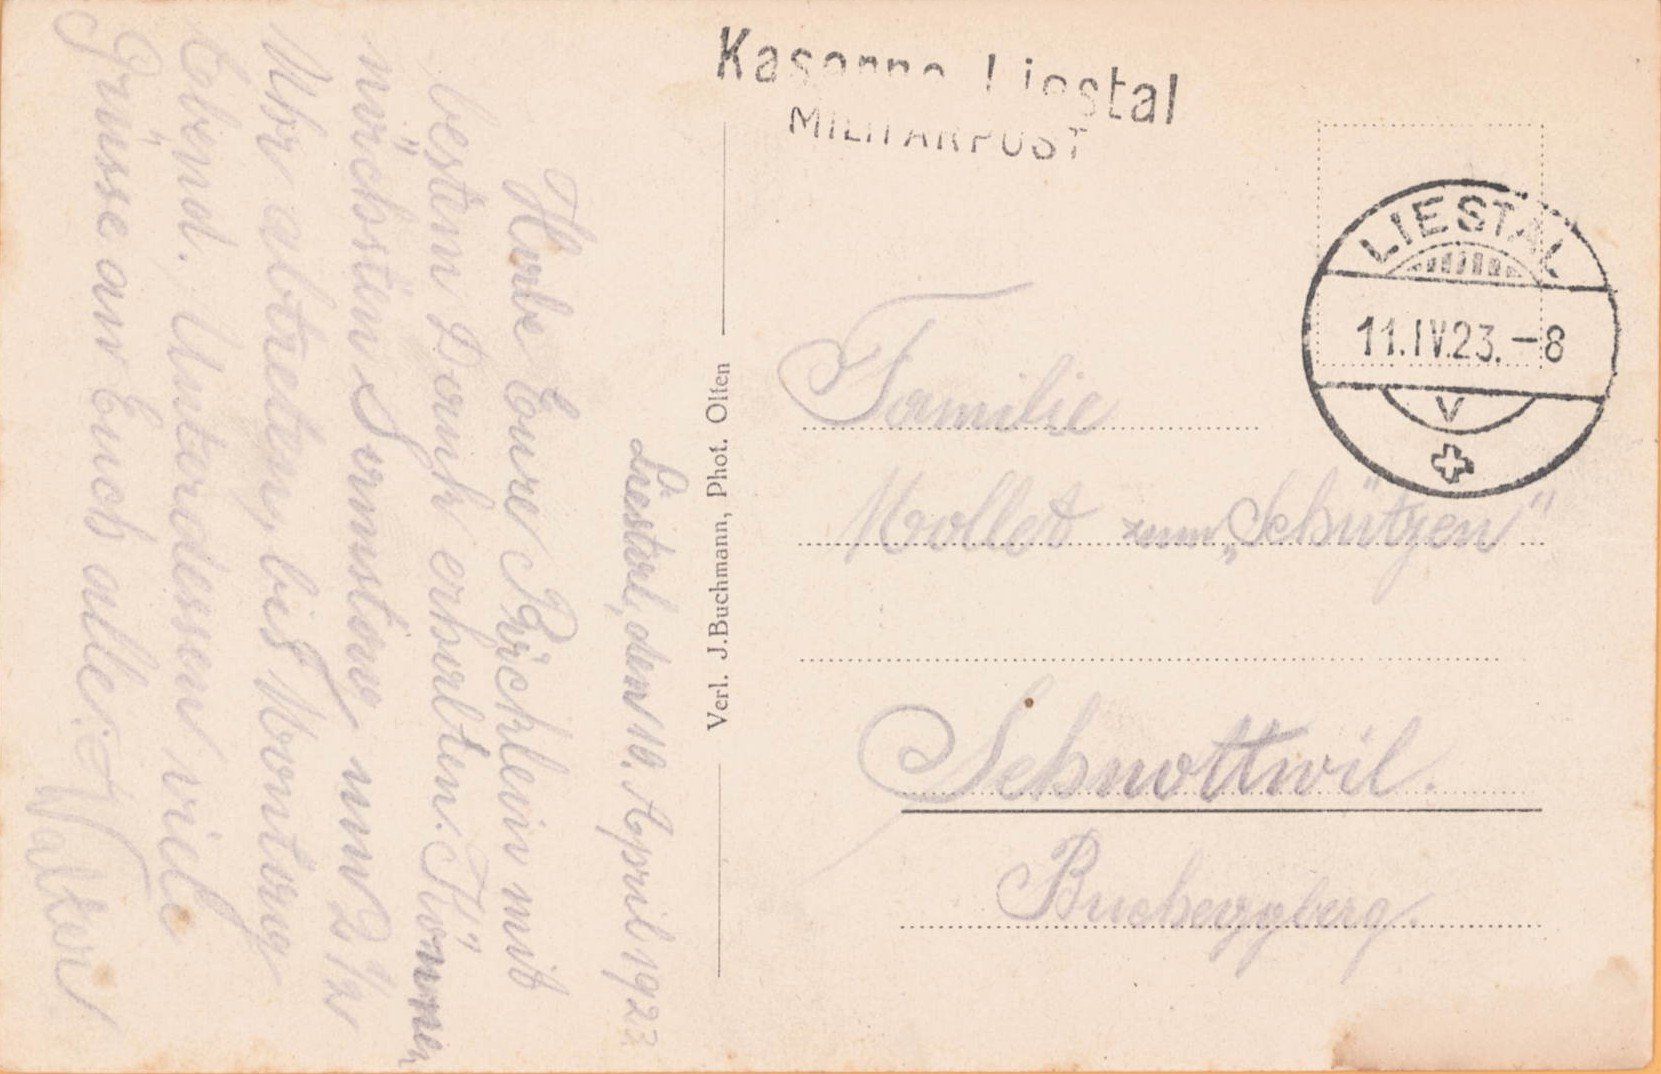 Kaserne Liestal
MILITÄRPOST
LIESTAL
11.IV.23.-8
V
Familie
Mollet zum „Schützen"
Schnottwil.
Bucheggberg.
Verl. J.Buchmann, Phot. Olten
Liestal, den 10. April 1923
Habe Eure Päcklein mit
bestem Dank erhalten. Können
nächsten Samstag um 2 ½
Uhr abtreten, bis Montag
Abend. Unterdessen viele
Grüsse an Euch alle:
Walter